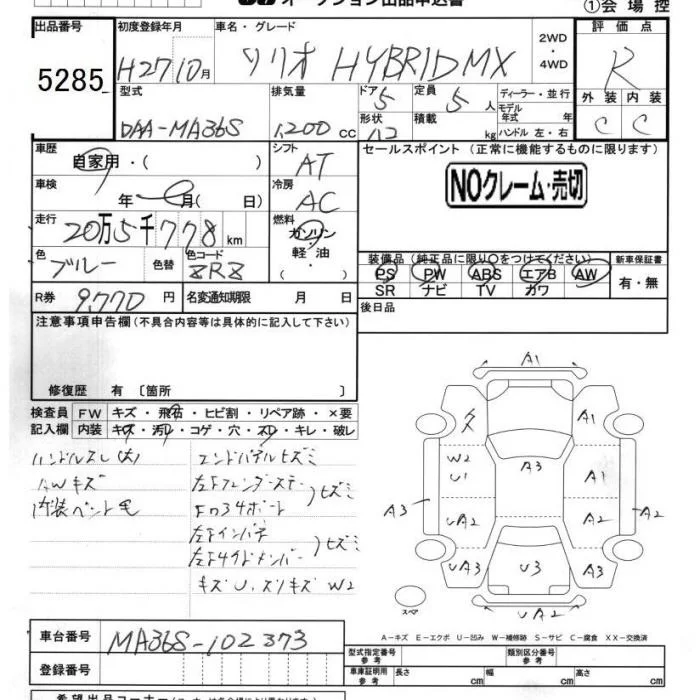 オークション出品申込書
①会場控
出品番号 初度登録年月 車名・グレード 評価点
5285 H27 10月 ソリオ HYBRID MX 2WD・4WD R
型式 排気量 ドア 5 定員 5人 ディーラー・並行 外装 内装
DAA-MA36S 1,200cc 形状 積載 kg モデル年式 年 ハンドル 左・右 C C
車歴 シフト セールスポイント(正常に機能するものに限ります)
自家用・( ) AT
NOクレーム・売切
車検 冷房
年 月(日) AC
走行 燃料
20万5千778km ガソリン・軽油・
色 色替 色コード 装備品(純正品に限り○をつけてください) 新車保証書
ブルー ZRZ PS PW ABS エアB AW 有・無
SR ナビ TV カワ
R券 9,770円 名変通知期限 月 日 後日品
注意事項申告欄(不具合内容等は具体的に記入して下さい)
修復歴 有〔箇所 〕
検査員 FW キズ・飛石・ヒビ割・リペア跡・×要
記入欄 内装 キズ・汚れ・コゲ・穴・スレ・キレ・破レ
ハンドルスレ(大) エンドパネルヒズミ
AWキズ
内装ペット毛
キズU、スリキズW2
A1
A1
W2
U1 A3 A1
A3 UA2 A2 A2
UA3 U3 A3
スペア UA2
A-キズ E-エクボ U-凹み W-補修跡 S-サビ C-腐食 XX-交換済
車台番号 MA36S-102373
型式指定番号 参考 類別区分番号 参考
登録番号 車庫証明用 参考 長さ cm 幅 cm 高さ cm
希望出品コーナー